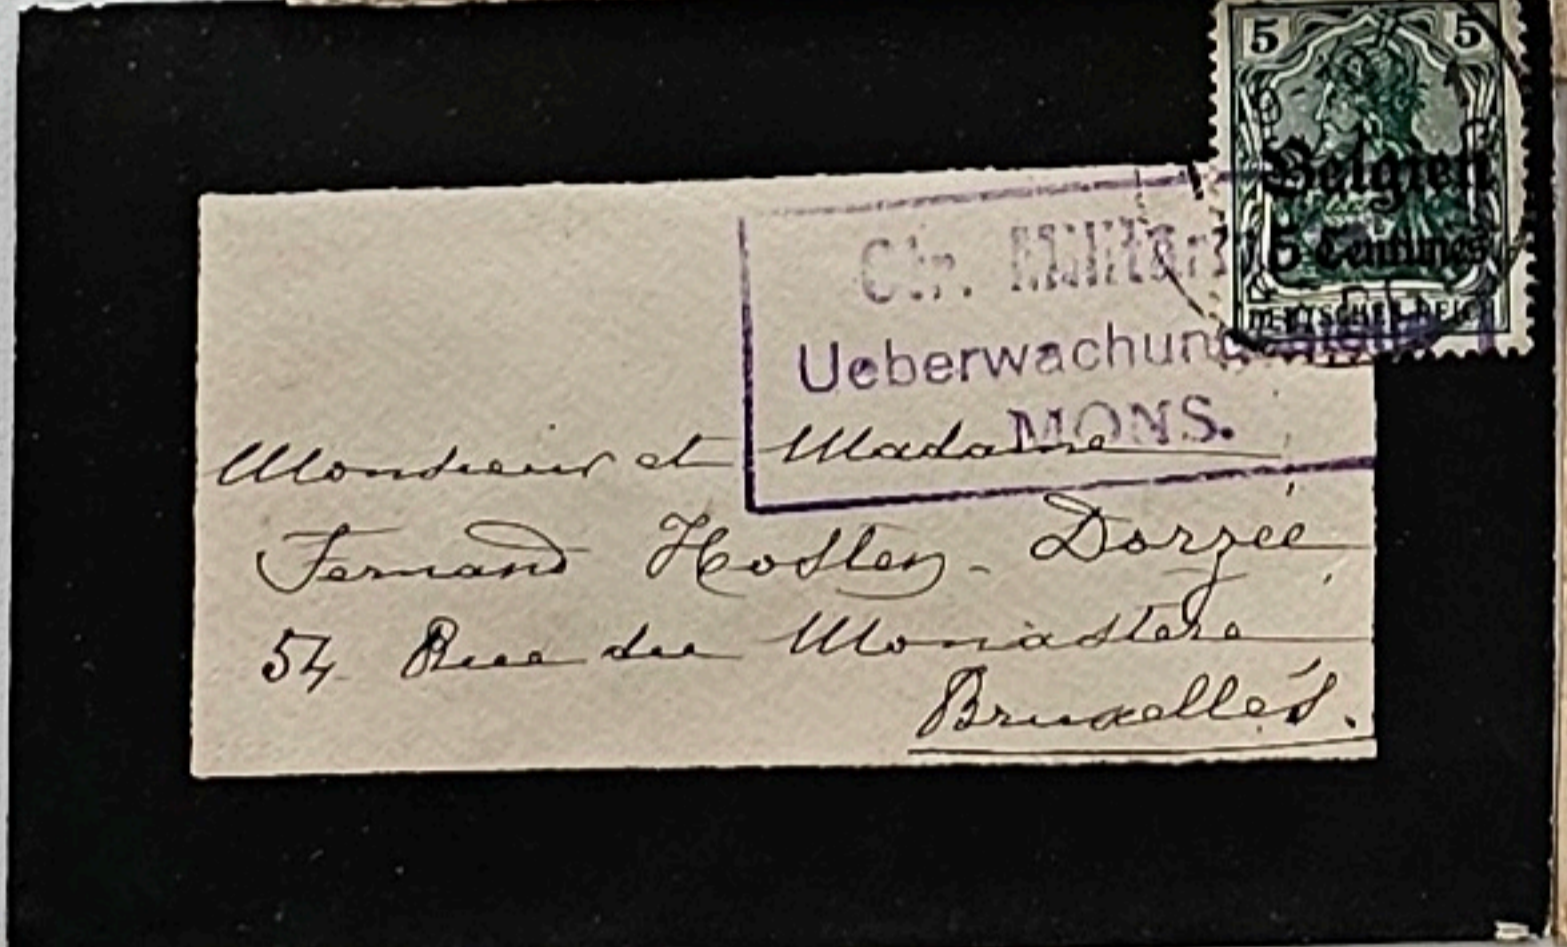 5 5
Belgien
5 Centimes
DEUTSCHES REICH
Militär
Ueberwachungsstelle
MONS.
Monsieur et Madame
Fernand Hosten - Dorzée
54 Rue du Monastère
Bruxelles.